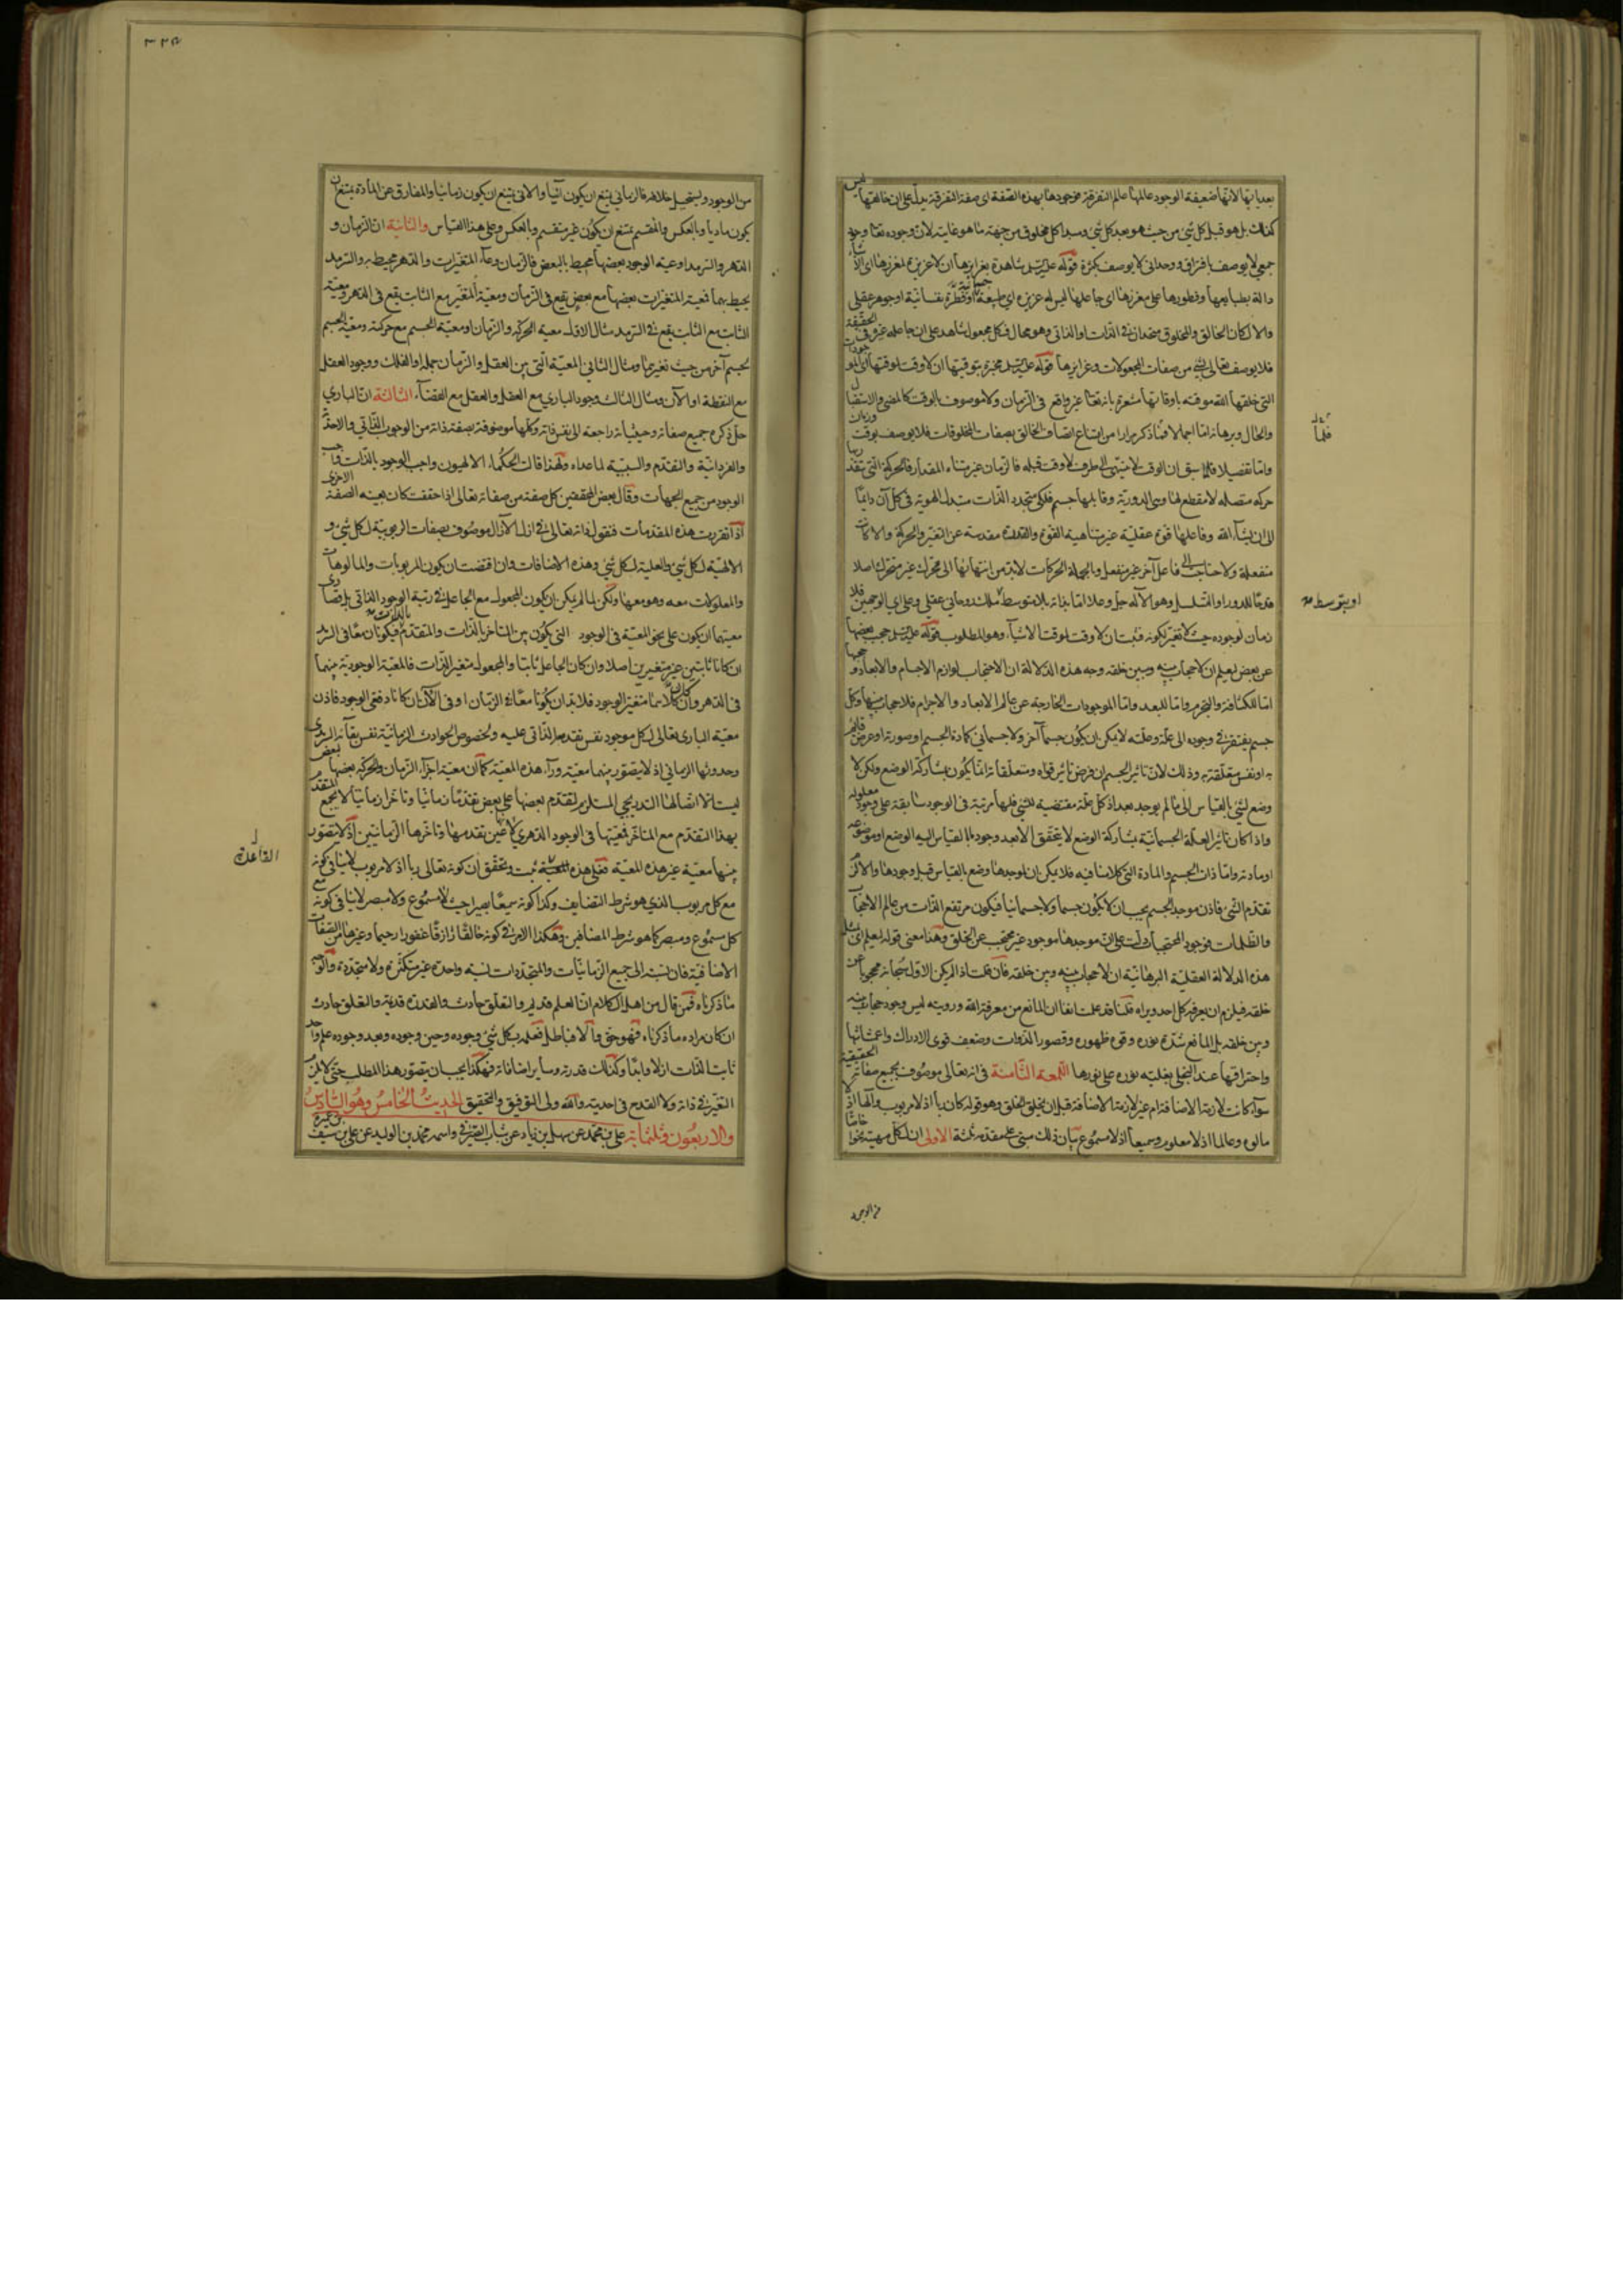 بعدياتها لانها ضعيفة الوجود عالمها عالم التفرقة فوجودها بهذه الصفة اى صفة التفرقة يدل على ان خالقها ليس
كذلك بل هو قبل كل شئ من حيث هو بعد كل شئ ومبدا كل مخلوق من جهة ما هو غايته لان وجوده تعالى وجود
جمعى لا يوصف بافتراق ووحدانى لا يوصف بكثرة قوله عليه السلام شاهدة بغرايزها ان لا غريزة لمغرزها اى
دالة بطبايعها وفطورها على مغرزها اى جاعلها ليس له غريزة اى طبيعة جسمانية او فطرة نفسانية او جوهر عقلى
والا لكان الخالق والمخلوق متحدان فى الذات او الذاتى وهو محال فكل مجعول شاهد على ان جاعله غير
فلا يوصف تعالى بشئ من صفات المجعولات وغرايزها قوله عليه السلام مخبرة بتوقيتها ان لا وقت لموقتها اى
التى خلقها الله موقتة باوقاتها مشعرة بانه تعالى غير واقع فى الزمان ولا موصوف بالوقت كالمضى والاستقبال
والحال وبرهانه اما اجمالا فما ذكر مرارا من امتناع اتصاف الخالق بصفات المخلوقات فلا يوصف بوقت وزمان
واما تفصيلا فلما سبق ان الوقت لا ينتهى الى طرف لا وقت قبله فالزمان غير متناه المقدار فالحركة التى
حركة متصلة لا مقطع لها وهى الدورية وقابلها جسم فلكى متجدد الذات متبدل الهوية فى كل آن دايما
الى ان يشاء الله وفاعلها قوة عقلية غير متناهية القوة والقدرة مقدسة عن التغير والحركة والا لكانت
منفعلة ولاحتاجت الى فاعل آخر غير منفعل وبالجملة الحركات لابد من انتهائها الى محرك غير متحرك اصلا
دفعا للدور او التسلسل وهو الاله جل وعلا اما بذاته بلا توسط ملك روحانى عقلى وعلى اى الوجهين فلا
زمان لوجوده حيث لا تغير لكونه فثبت ان لا وقت لموقت الاشياء وهو المطلوب قوله عليه السلام حجب بعضها
عن بعض ليعلم ان لا حجاب بينه وبين خلقه وجه هذه الدلالة ان الاحتجاب لوازم الاجسام والابعاد و
اما للكثافة والتجرم واما للبعد واما الموجودات الخارجة عن عالم الابعاد والاجرام فلا حجاب بينها وكل
جسم يفتقر فى وجوده الى علة وعلته لا يمكن ان يكون جسما آخر ولا جسمانى كمادة الجسم او صورة او عرض قائم
به او نفس متعلقة به وذلك لان تاثير الجسم ان فرض تاثير قواه ومتعلقاته انما يكون بمشاركة الوضع ولكن لا
وضع لشئ بالقياس الى ما لم يوجد بعد اذ كل علة مقتضية للشئ فلها مرتبة فى الوجود سابقة على وجود معلوله
واذا كان تاثير العلة الجسمانية بمشاركة الوضع لا يتحقق الا بعد وجود ما بالقياس اليه الوضع او موضوعه
او مادته واما ذات الجسم والمادة التى كلامنا فيه فلا يمكن ان لموجدها وضع بالقياس قبل وجودها والا لزم
تقدم الشئ فاذن موجد الجسم يجب ان لا يكون جسما ولا جسمانيا فيكون مرتفع الذات من عالم الاحتجاب
والظلمات فوجود المحتجبات دلت على ان موجدها موجود غير محتجب عن الخلق وهذا معنى قوله ليعلم اى
هذه الدلالة العقلية البرهانية ان لا حجاب بينه وبين خلقه فان قلت اذا لم يكن الاول سبحانه محجوبا عن
خلقه فيلزم ان يعرفه كل احد ويراه قلنا قد علمت انفا ان المانع من معرفة الله ورويته ليس وجود حجاب بينه
وبين خلقه بل المانع شدة نوره وقوة ظهوره وقصور الذوات وضعف قوى الادراك واعشائها
واحتراقها عند التجلى بغلبة نوره على نورها اللمعة الثامنة فى انه تعالى موصوف بجميع صفاته الحقيقية
سواء كانت لازمة الاضافة ام غير لازمة الاضافة قبل ان يخلق الخلق وهو قوله كان ربا اذ لا مربوب والها اذ لا
مالوه وعالما اذ لا معلوم وسميعا اذ لا مسموع بيان ذلك مبنى على مقدمة ثلثة الاولى ان لكل مهية نحوا خاصا
فلما
او بتوسط
من الوجود
من الوجود ويستحيل خلافه فالزمانى يمتنع ان يكون آنيا والانى يمتنع ان يكون زمانيا والمفارق عن المادة يمتنع ان
يكون ماديا وبالعكس والمنقسم يمتنع ان يكون غير منقسم وبالعكس وعلى هذا القياس والثانية ان الزمان و
الدهر والسرمد اوعية الوجود بعضها محيط بالبعض فالزمان وعاء المتغيرات والدهر محيط به والسرمد
يحيط بهما فمعية المتغيرات بعضها مع بعض يقع فى الزمان ومعية المتغير مع الثابت يقع فى الدهر ومعية
الثابت مع الثابت يقع فى السرمد مثال الاول معية الحركة والزمان او معية الجسم مع حركته ومعية الجسم
لجسم آخر من حيث تغيرهما ومثال الثانى المعية التى بين العقل والزمان جملة او الفلك ووجود العقل
مع النقطة او الآن ومثال الثالث وجود البارى مع العقل والعقل مع القضاء الثالثة ان البارى
جل ذكره جميع صفاته وحيثياته راجعة الى نفس ذاته وكلها موصوفة بصفة ذاته من الوجوب الذاتى والاحدية
والفردانية والتقدم والسببية لما عداه ولهذا قالت الحكماء الالهيون واجب الوجود بالذات واجب
الوجود من جميع الجهات وقال بعض المحققين كل صفة من صفاته تعالى اذا حققت كانت بعينه الصفة الاخرى
اذا تقررت هذه المقدمات فنقول ذاته تعالى فى ازل الآزال موصوف بصفات الربوبية لكل شئ و
الالهية لكل شئ والعلية لكل شئ وهذه الاضافات وان اقتضت ان يكون المربوبات والمالوهات
والمعلولات معه وهو معها ولكن لما لم يكن ان يكون المجعول مع الجاعل فى رتبة الوجود الذاتى بل قصارى
معيتهما ان يكون على نحو المعية فى الوجود التى يكون بين المتاخر بالذات والمتقدم بالذات فيكونان معا فى السرمد
ان كانا ثابتين غير متغيرين اصلا وان كان الجاعل ثابتا والمجعول متغير الذات فالمعية الوجودية بينهما
فى الدهر وان كان كلاهما متغير الوجود فلا بد ان يكونا معا فى الزمان او فى الآن ان كانا دفعى الوجود فاذن
معية البارى تعالى لكل موجود نفس تقدمه الذاتى عليه ولخصوص الحوادث الزمانية نفس بقائه السرمدى
وحدوثها الزمانى اذ لا يتصور بينهما معية وراء هذه المعية كما ان معية اجزاء الزمان والحركة بعضها بعض
ليست الا اتصالها التدريجى المستلزم لتقدم بعضها على بعض تقدما زمانيا وتاخرا زمانيا لا يجمع المتقدم
بهذا التقدم مع المتاخر فمعيتها فى الوجود الدهرى عين تقدمها وتاخرها الزمانيين اذ لا يتصور
بينها معية غير هذه المعية فعلى هذه ثبت وتحقق ان كونه تعالى ربا اذ لا مربوب لا ينافى كونه
مع كل مربوب الذى هو شرط التضايف وكذا كونه سميعا بصيرا حيث لا مسموع ولا مبصر لا ينافى كونه مع
كل مسموع ومبصر كما هو شرط المضافين وهكذا الامر فى كونه خالقا رازقا غفورا رحيما وغيرها من الصفات
الاضافية فان نسبته الى جميع الزمانيات والمتجددات نسبة واحدة غير متكثرة ولا متجددة
ما ذكرناه فمن قال من اهل الكلام ان العلم قديم والتعلق حادث والقدرة قديمة والتعلق حادث
ان كان مراده ما ذكرناه فهو حق والا فباطل فعلمه بكل شئ وجوده وحين وجوده وبعد وجوده علم واحد
ثابت الذات ازلا وابدا وكذلك قدرته وساير اضافاته فهكذا يجب ان يتصور هذا المطلب حتى لا يلزم
التغير فى ذاته ولا القدح فى احديته والله ولى التوفيق والتحقيق الحديث الخامس وهو السادس
والاربعون وثلثمائة على بن محمد عن سهل بن زياد عن شباب الصيرفى واسمه محمد بن الوليد عن على بن سيف بن عميرة
القاعدة